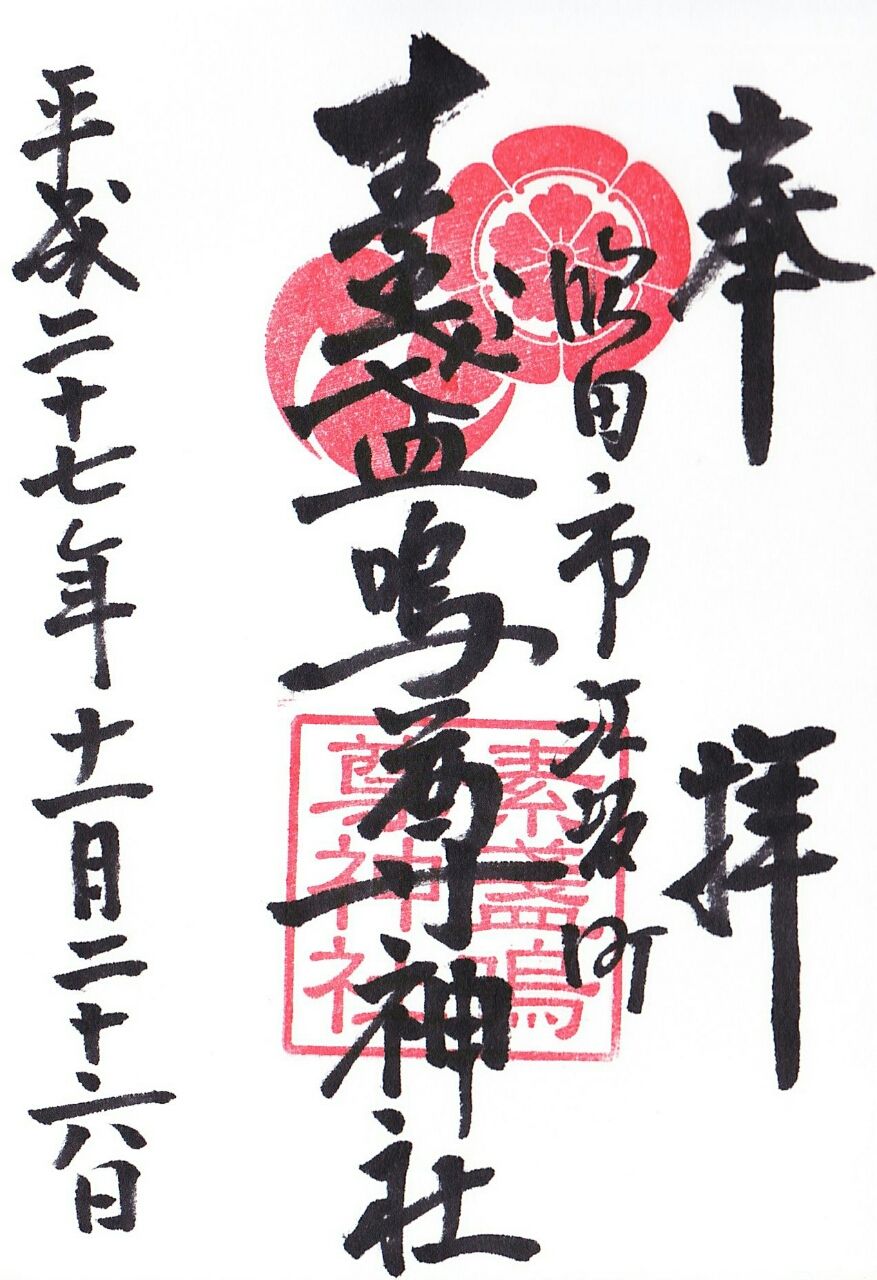 奉拝
吹田市江坂町
素盞嗚尊神社
平成二十七年十一月二十六日
素盞嗚
尊神社